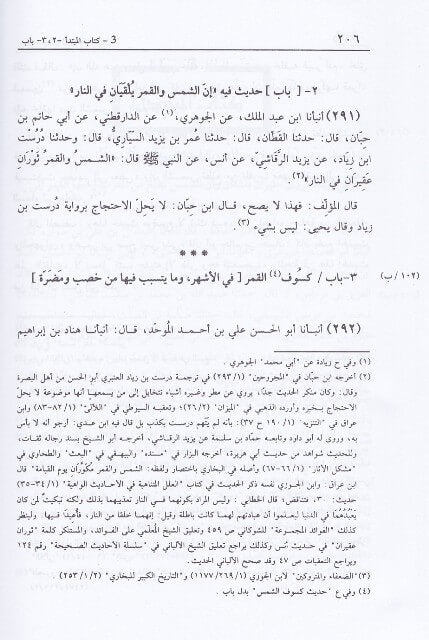 ٢٠٦ 3 - كتاب المبتدأ -٢،٣- باب
٢- [ باب ] حديث فيه «إنّ الشمس والقمر يُلقَيَان في النار»
(٢٩١) أنبأنا ابن عبد الملك، عن الجوهري،(١) عن الدارقطني، عن أبي حاتم بن
حِبّان، قال: حدثنا القَطّان، قال: حدثنا عُمر بن يزيد السيّاريُّ، قال: وحدثنا دُرُسْت
ابن زياد، عن يزيد الرَّقاشِيّ، عن أنس، عن النبي ﷺ قال: «الشمسُ والقمرُ ثَوْرَانِ
عَقِيرَانِ في النار»(٢).
قال المؤلّف: فهذا لا يصح، قال ابن حبّان: لا يَحلّ الاحتجاج برواية دُرست بن
زياد وقال يحيى: ليس بشيء (٣).
***
٣-باب/ كسُوف(٤) القمر [ في الأشهر، وما يتسبب فيها من خصب ومَضَرّة ] (١٠٢/ب)
(٢٩٢) أنبأنا أبو الحسن علي بن أحمد الموحّد، قال: أنبأنا هناد بن إبراهيم
(١) وفي ح زيادة عن "أبي محمد" الجوهري .
(٢) أخرجه ابن حبّان في "المجروحين" (٢٩٣/١) في ترجمة درست بن زياد العنبري أبو الحسن من أهل البصرة
وقال: وكان منكر الحديث جدًا، يروي عن مطر وغيره أشياء تتخايل إلى من يسمعها أنها موضوعة لا يحلّ
الاحتجاج بخبره وأورده الذهبي في "الميزان" (٢٦/٢)؛ وتعقبه السيوطي في "اللآلئ" (٨٢/١-٨٣) وابن
عراق في "التنزيه" (١/ ١٩٠ ح ٣٧): بأنه لم يتهم درست بكذب بل قال فيه ابن عدي: أرجو أنه لا بأس
به، وروى له أبو داود وتابعه حمّاد بن سلمة عن يزيد الرقاشي، أخرجه أبو الشيخ بسند رجاله ثقات،
وللحديث شواهد من حديث أبي هريرة، أخرجه البزار في "مسنده" والبيهقي في "البعث" والطحاوي في
"مشكل الآثار" (٦٦/١-٦٧) وأصله في البخاري باختصار ولفظه: الشمس والقمر مُكوَّران يوم القيامة" قال
ابن عراق: وابن الجوزي نفسه ذكر الحديث في كتاب "العلل المتناهية في الأحاديث الواهية" (٣٤/١-٣٥)
حديث: ٣٠، فتناقض؛ قال الخطابي : وليس المراد بكونهما في النار تعذيبهما بذلك ولكنه تبكيتٌ لمن كان
يَعبُدُهُمَا في الدنيا ليعلموا أن عبادتهم لهما كانت باطلة وقيل: إنهما خلقا من النار، فأعيدا فيها؛ ولينظر
كذلك "الفوائد المجموعة" للشوكاني ص ٤٥٩ وتعليق الشيخ المعلمي على الفوائد، والمستنكر كلمة "ثوران
عقيران" في حديث أنس وكذلك يراجع تعليق الشيخ الألباني في "سلسلة الأحاديث الصحيحة" رقم ١٢٤
ويراجع التعقبات ص ٤٧ وقد صحح الألباني الحديث .
(٣) "الضعفاء والمتروكين" لابن الجوزي (١١٧٧/٢٦٩/١) و"التاريخ الكبير للبخاري" (٢٥٣/١/٢).
(٤) وفي ع "حديث كسوف الشمس" بدل باب .